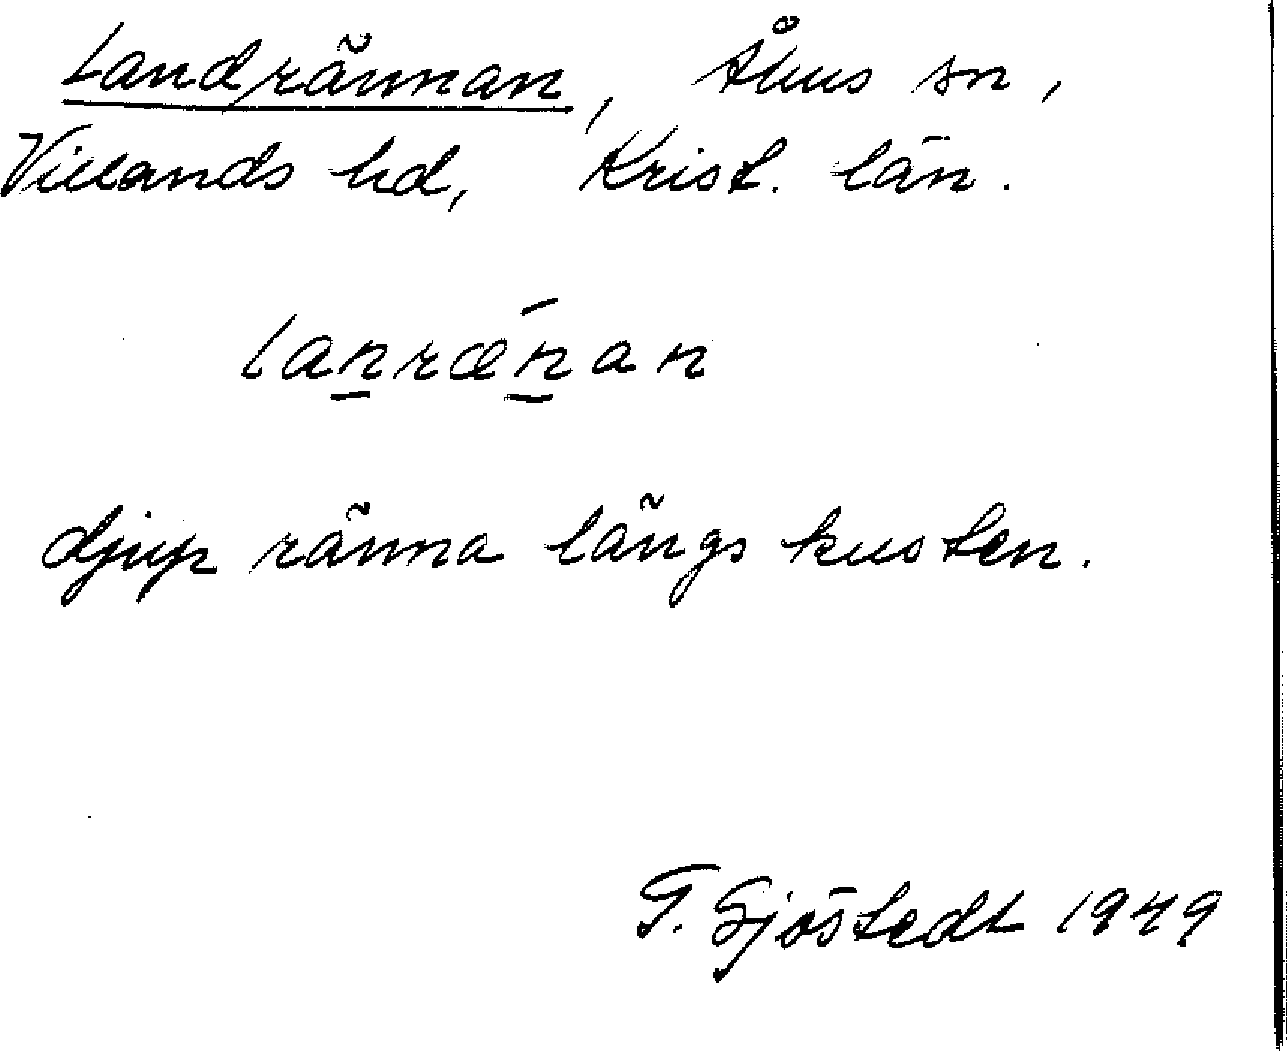 Landrännan, Åhus sn,
Villands hd, Krist. län.
lanrænan
djup ränna längs kusten.
G. Sjöstedt 1949